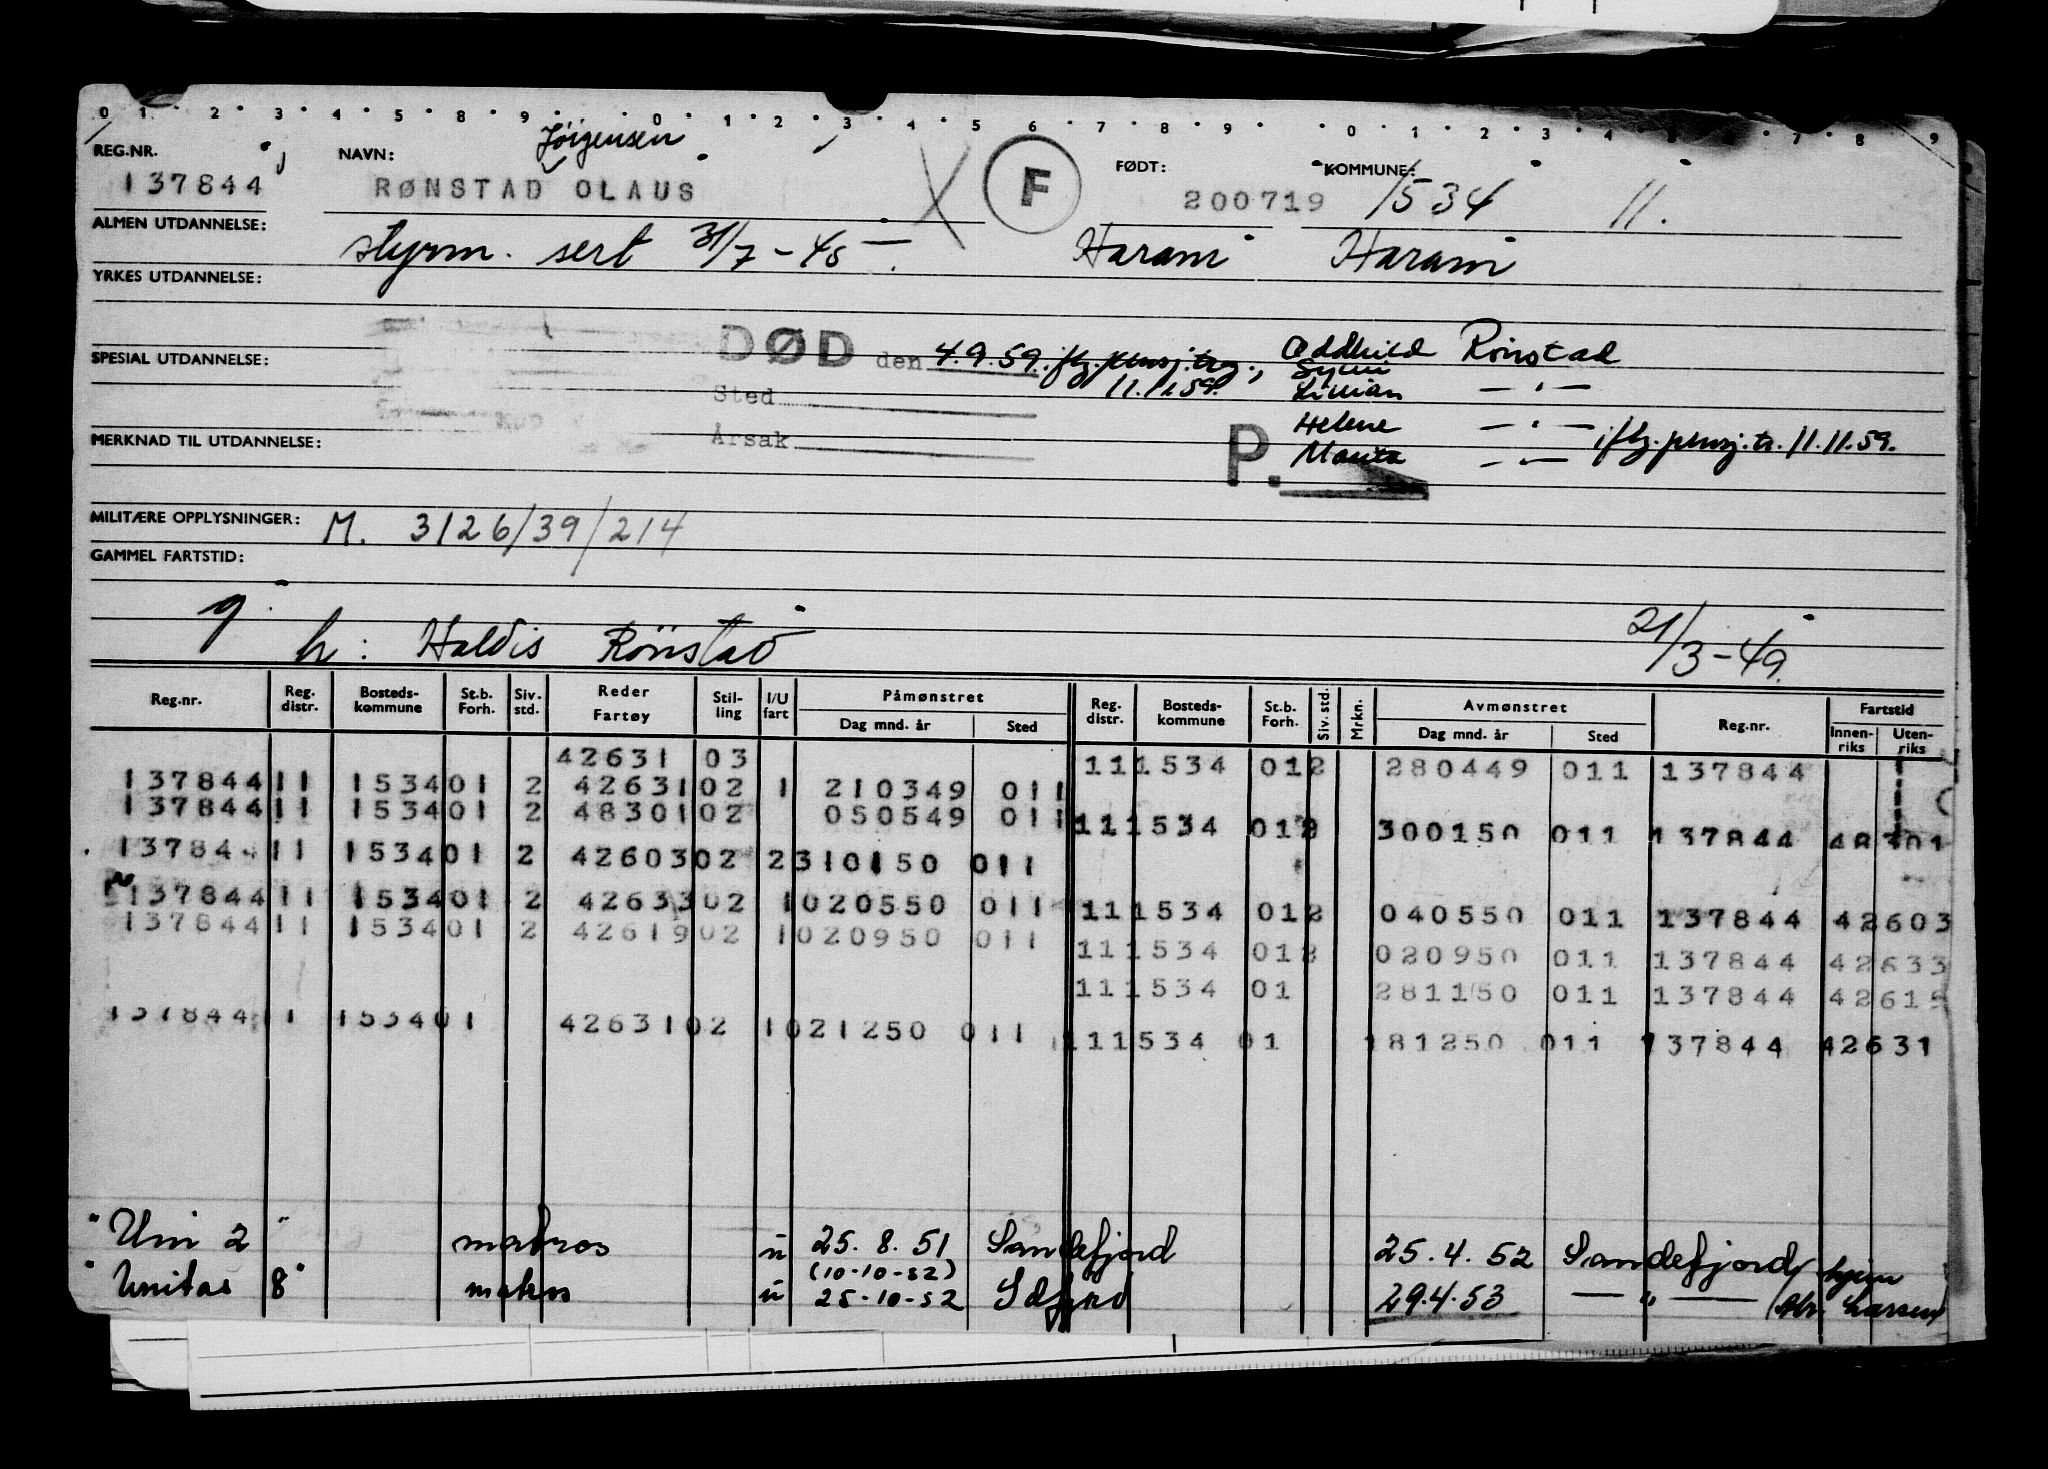 0 1 2 3 4 5 6 8 9 0 1 2 3 4 5 6 7 8 9 0 1 2 3 4 7 8 9
Jørgensen
REG.NR. NAVN: FØDT: KOMMUNE:
137844 RØNSTAD OLAUS F 200719 1534 11.
ALMEN UTDANNELSE: styrm. sert 31/7-45 Haram Haram
YRKES UTDANNELSE:
DØD den 4.9.59. iflg. pensj.trg., Oddhild Rønstad
SPESIAL UTDANNELSE: 11.11.59.
Sted Lillian — " —
Årsak Helene — " —
MERKNAD TIL UTDANNELSE: P. — " — iflg. pensj.tr. 11.11.59.
MILITÆRE OPPLYSNINGER: M. 3126/39/214
GAMMEL FARTSTID:
g. h: Haldis Rønstad 21/3-49
Reg.nr. Reg. distr. Bosteds-kommune St.b. Forh. Siv. std. Reder Fartøy Stil-ling I/U fart Påmønstret Dag mnd. år Sted Reg. distr. Bosteds-kommune St.b. Forh. Siv. std. Mrkn. Avmønstret Dag mnd. år Sted Reg.nr. Fartstid Innen-riks Uten-riks
42631 03 11 1534 01 2 280449 011 137844
137844 11 1534 01 2 42631 02 1 210349 011
137844 11 1534 01 2 48301 02 050549 011 11 1534 01 2 300150 011 137844 48301
137844 11 1534 01 2 42603 02 2 310150 011
137844 11 1534 01 2 42633 02 1 020550 011 11 1534 01 2 040550 011 137844 42603
137844 11 1534 01 2 42619 02 1 020950 011 11 1534 01 2 020950 011 137844 42633
11 1534 01 281150 011 137844 42619
137844 11 1534 01 42631 02 1 021250 011 11 1534 01 181250 011 137844 42631
"Uni 2" matros u 25.8.51 Sandefjord 25.4.52 Sandefjord
(10-10-52)
"Unitas 8" matros u 25-10-52 Sdfjord 29.4.53 — " — Larsen